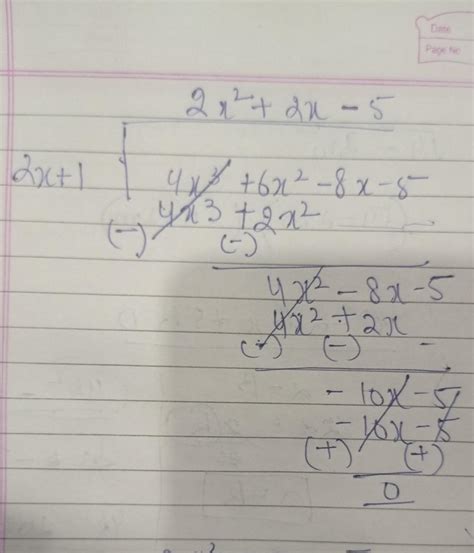 Date
Page No
2x² + 2x - 5
2x+1
4x³ + 6x² - 8x - 5
4x3 + 2x²
(-) (-)
4x² - 8x - 5
4x² + 2x
(-) (-) -
- 10x - 5
- 10x - 5
(+) (+)
0